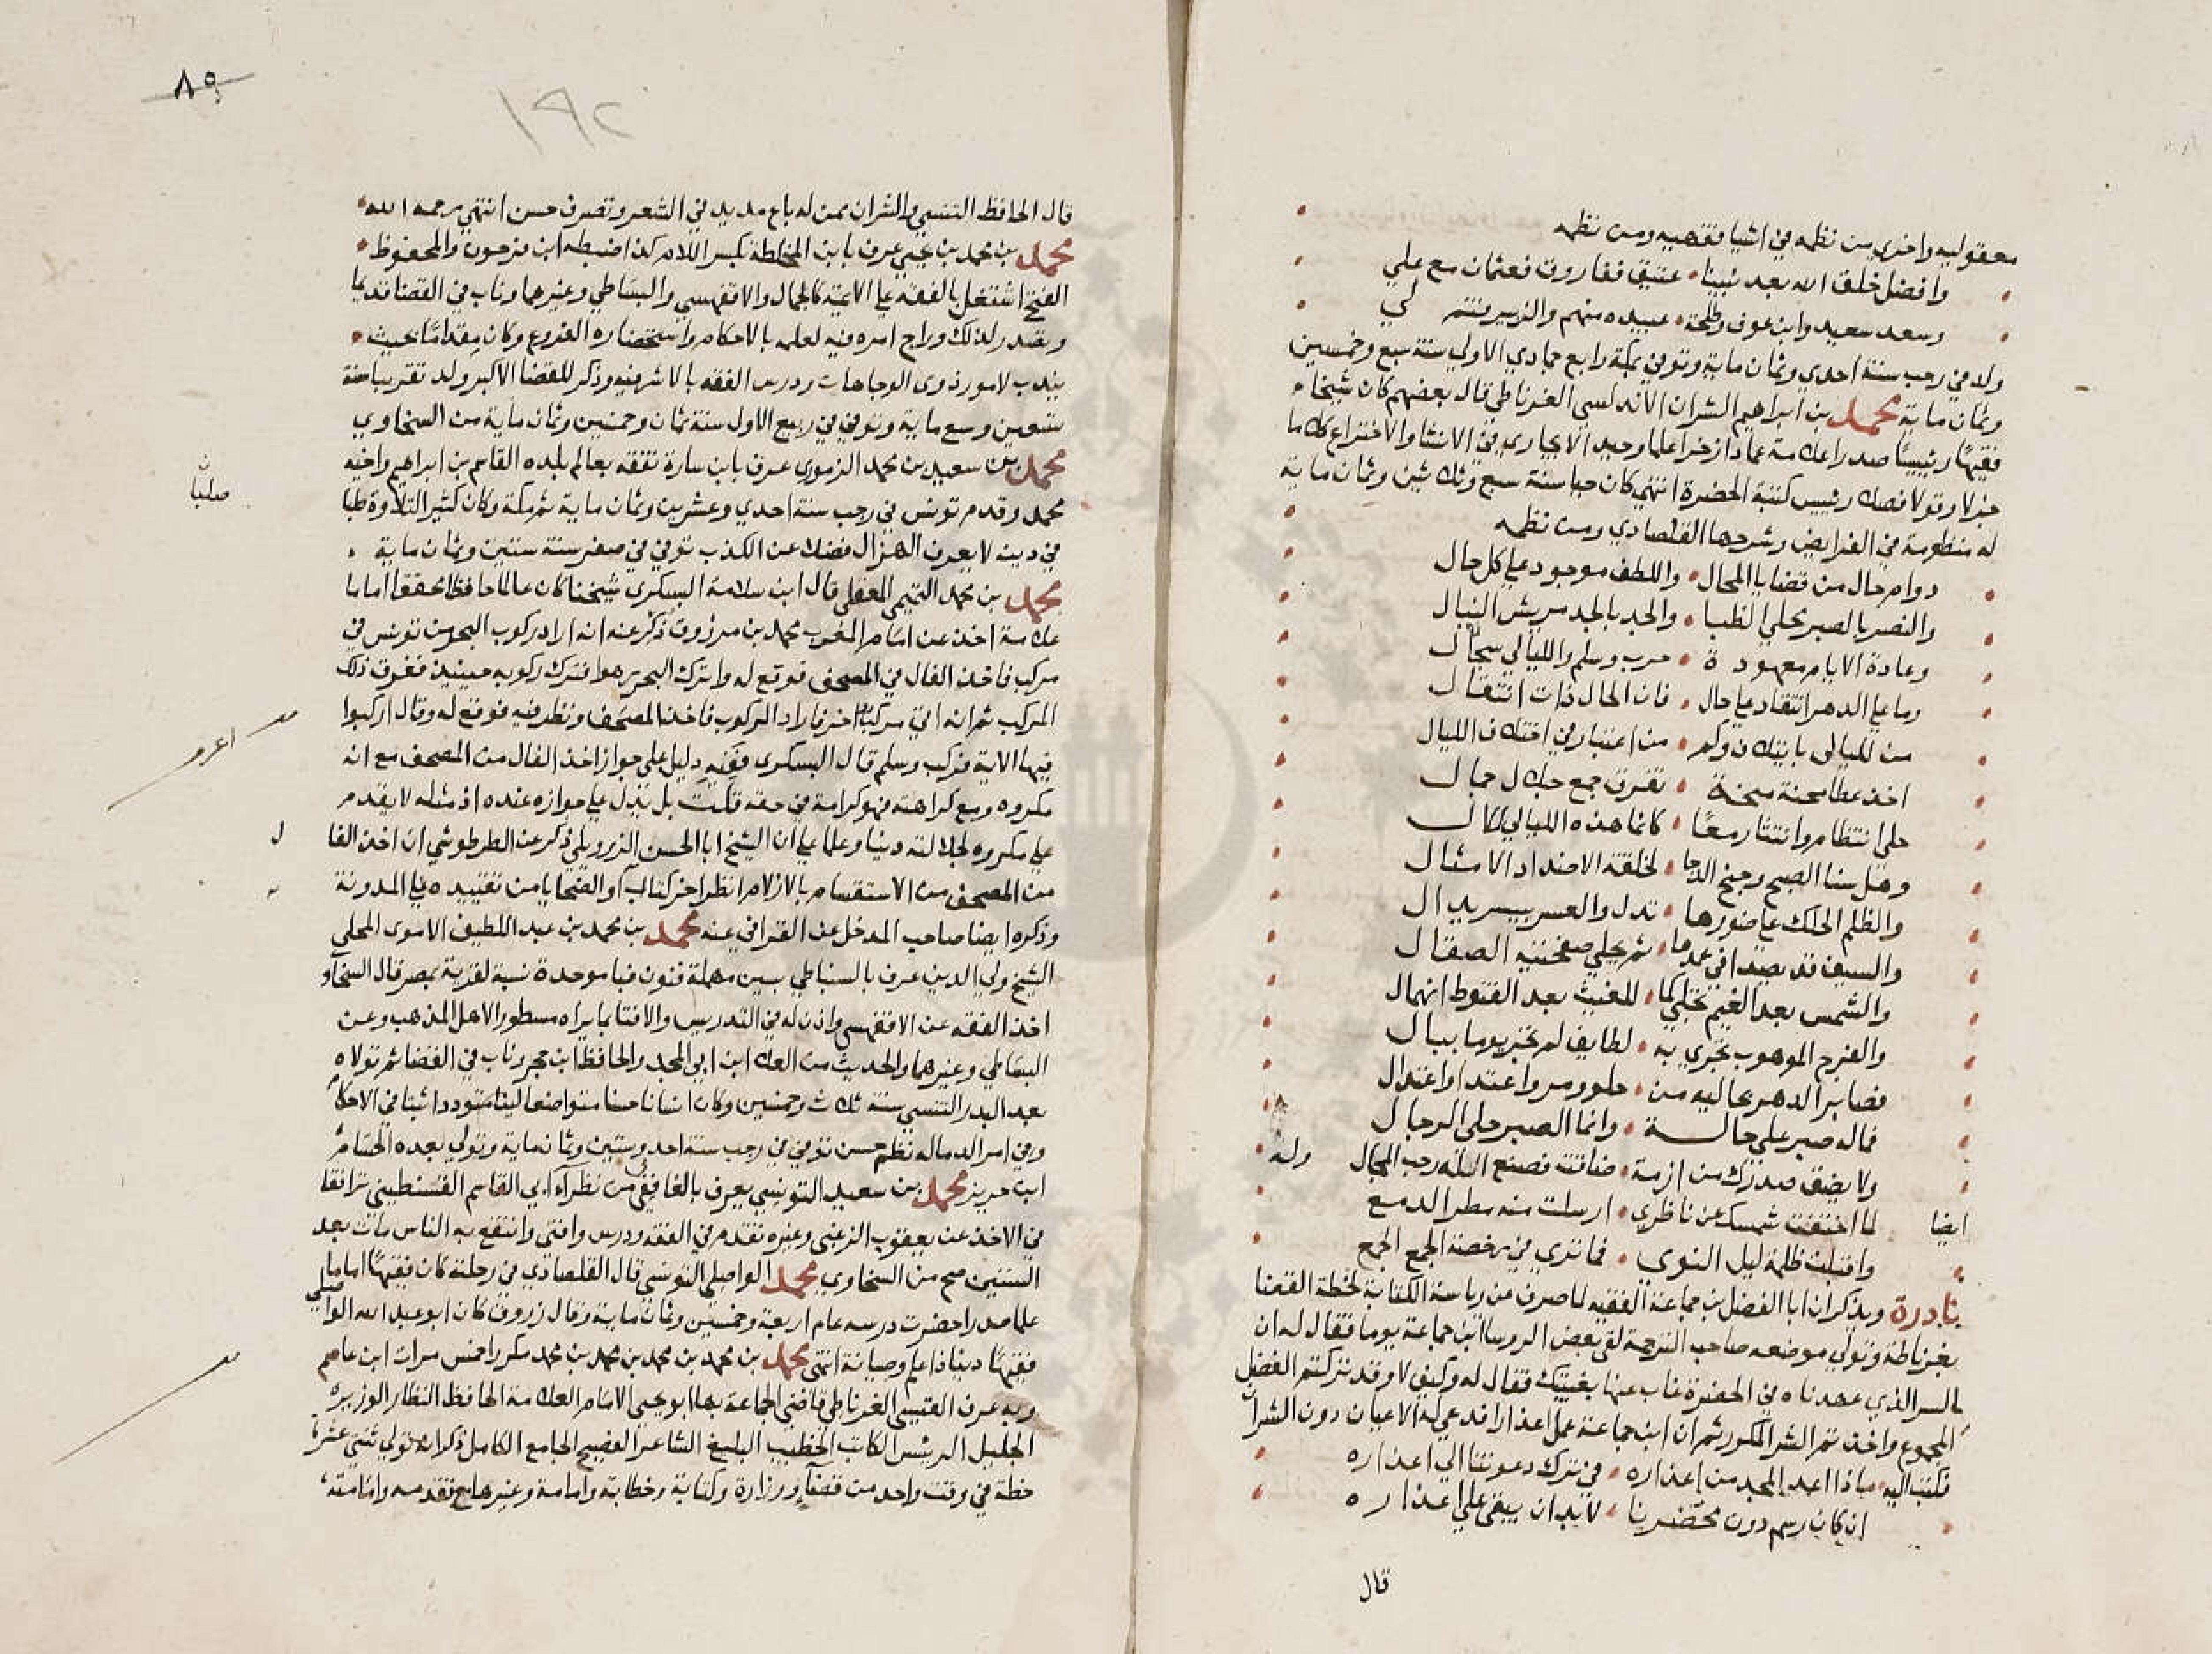 معقوليه واخري من نظمه في اشيا فقهيه ومن نظمه
وافضل خلق الله بعد نبينا عتيق ففاروق فعثمان مع علي
وسعد سعيد وابن عوف وطلحة عبيده منهم والزبير فتم لي
ولد في رجب سنة احدي وثمان ماية وتوفي بمكة رابع جمادي الاولي سنة سبع وخمسين
وثمان ماية محمد بن ابراهيم الشران الاندلسي الغرناطي قال بعضهم كان شيخا
فقيها رئيسا صدرا علامة عمادا زخرا علما وحيد الايجاري في الانشا والاختراع كلاما
جزلا وقولا فصلا رئيس كتبة الحضرة انتهي كان حيا سنة سبع وثلاثين وثمان ماية
له منظومة في الفرايض وشرحها القلصادي ومن نظمه
دوام حال من قضايا المحال واللطف موجود علي كل حال
والنصر بالصبر محلي الظبا والجد بالجد مريش النبال
وعادة الايام معهودة حرب وسلم والليالي سجال
وما علي الدهر انتقاد علي حال فان الحال ذات انتقال
من لليالي بائتلاف وكم من اعتبار في اختلاف الليال
اخذ عطا محنة منحة تفرق جمع جلال جمال
حلي انتظام وانتثار معا كانما هذه الليالي لال
وهل سنا الصبح وجنح الدجا لخلقة الاضداد الا مثال
والظلم الحلك علي ضورها تدل والعسر بيسر يدال
والسيف قد يصدا في غمدها ثم يجلي صفحتيه الصقال
والشمس بعد الغيم تجلي كما للغيث بعد القنوط انهمال
والفرج الموهوب تجري به لطايف لم تجر يوما ببال
فصابر الدهر بحاليه من حلو ومر واعتدا واعتدال
فماله صبر علي حالة وانما الصبر حلي الرجال
ولا يضق صدرك من ازمة ضاقت فصنع الله رحب المجال وله
ايضا لما اختفت شمسك عن ناظري ارسلت منه مطر الدمع
واقبلت ظلمة ليل النوي فما تري في رخصة الجمع الجمع
نادرة ويذكر ان ابا الفضل بن جماعة الفقيه لما صرف عن رياسة الكتابة لخطة القضا
بغرناطة وتولي موضعه صاحب الترجمة لقي بعض الروسا ابن جماعة يوما فقال له ان
السر الذي عهدناه في الحضرة غاب عنها بغيبتك فقال له وكيف لا وقد تركتم الفضل
المجموع واخذتم الشر المكور ثم ان ابن جماعة عمل اعذارا فدعي له الاعيان دون الشران
فكتب اليه ماذا اعد المجد من اعذاره في ترك دعوتنا الي اعذاره
ان كان رسم دون محضرنا لابد ان يبقي علي اعذاره
قال
٨٩
١٩٢
قال الحافظ التنسي والشران ممن له باع مديد في الشعر وتصرف حسن انتهي رحمه الله
محمد بن محمد بن يحيي عرف بابن المخلطة بكسر اللام كذا ضبطه ابن فرحون والمحفوظ
الفتح اشتغل بالفقه علي الائمة كالجمال والاقفهسي والبساطي وغيرهما وناب في القضا قديما
وتصدر لذلك وراج امره فيه لعلمه بالاحكام واستحضاره الفروع وكان مقداما بحيث
يندب لامور ذوي الوجاهات ودرس الفقه بالاشرفيه وذكر للقضا الاكبر ولد تقريبا سنة
تسعين وسبع ماية وتوفي في ربيع الاول سنة ثمان وخمسين وثمان ماية من السخاوي
محمد بن سعيد بن محمد الزموري عرف بابن سارة تفقه بعالم بلده القاسم بن ابراهيم واخيه
محمد وقدم تونس في رجب سنة احدي وعشرين وثمان ماية ثم مكة وكان كثير التلاوة صلبا
صلبا ن
في دينه لا يعرف الهزل فضلا عن الكذب توفي في صفر سنة ستين وثمان ماية
محمد بن محمد التميمي المغفلي قال ابن سلامة البسكري شيخنا كان عالما حافظا محققا اماما
علامة اخذ عن امام المغرب محمد بن مرزوق ذكر عنه انه اراد ركوب البحر من تونس في
مركب فاخذ الفال في المصحف فوقع له واترك البحر رهوا فترك ركوبه حينيذ فغرق ذلك
المركب ثم انه اتي مركبا اخر فاراد الركوب فاخذ المصحف ونظر فيه فوقع له وقال اركبوا
فيها الاية فركب وسلم قال البسكري ففيه دليل علي جواز اخذ الفال من المصحف مع انه
مكروه ومع كراهته فهو كرامة في حقه قلت بل يدل علي جوازه عنده اذ مثله لا يقدم
علي مكروه لجلالته دينا وعلما علي ان الشيخ ابا الحسن الزرويلي ذكر عن الطرطوشي ان اخذ الفا
ل
من المصحف من الاستقسام بالازلام انظر اخر كتاب الضحايا من تقييده علي المدونة
وذكره ايضا صاحب المدخل عن القرافي عنه محمد بن محمد بن عبد اللطيف الاموي المحلي
الشيخ ولي الدين عرف بالسنباطي بسين مهملة فنون فبا موحدة نسبة لقرية بمصر قال السخاو
اخذ الفقه عن الاقفهسي واذن له في التدريس والافتا بما يراه مسطورا لاهل المذهب وعن
البساطي وغيرهما والحديث من العلا ابن ابي المجد والحافظ ابن حجر وناب في القضا ثم تولاه
بعد البدر التنسي سنة ثلاث وخمسين وكان انسانا حسنا متواضعا لينا متوددا ثبتا في الاحكام
وفي امر الدما له نظم حسن توفي في رجب سنة احد وستين وثمان ماية وتولي بعده الحسام
ابن حريز محمد بن سعيد التونسي يعرف بالغافقي من نظرآء ابي القاسم القسنطيني ترافقا
في الاخذ عن يعقوب الزعبي وغيره تقدم في الفقه ودرس وافتي وانتفع به الناس مات بعد
الستين صح من السخاوي محمد الواصلي التونسي قال القلصادي في رحلته كان فقيها اماما
علما صدرا حضرت درسه عام اربعة وخمسين وثمان ماية وقال زروق كان ابو عبد الله الواصلي
فقيها دينا ذا علم وصيانة انتهي محمد بن محمد بن محمد بن محمد بن محمد مكررا خمس مرات ابن عاصم
وبه عرف القيسي الغرناطي قاضي الجماعة بها ابو يحيي الامام العلامة الحافظ النظار الوزير
الجليل الرئيس الكاتب الخطيب البليغ الشاعر الفصيح الجامع الكامل ذكر انه تولي ثنتي عشرة
خطة في وقت واحد من قضآء ووزارة وكتابة وخطابة وامامة وغيرها مع تقدمه وامامته